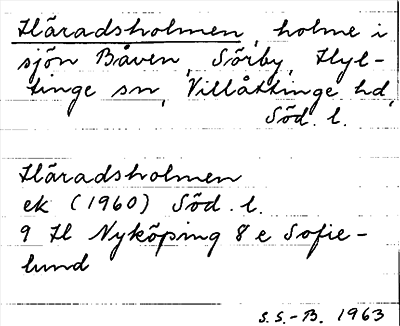 Häradsholmen, holme i
sjön Båven, Sörby, Hyl-
tinge sn, Villåttinge hd,
Söd. l.
Häradsholmen
ek (1960) Söd. l.
9 H Nyköping 8 e Sofie-
lund
S.S.-B. 1963